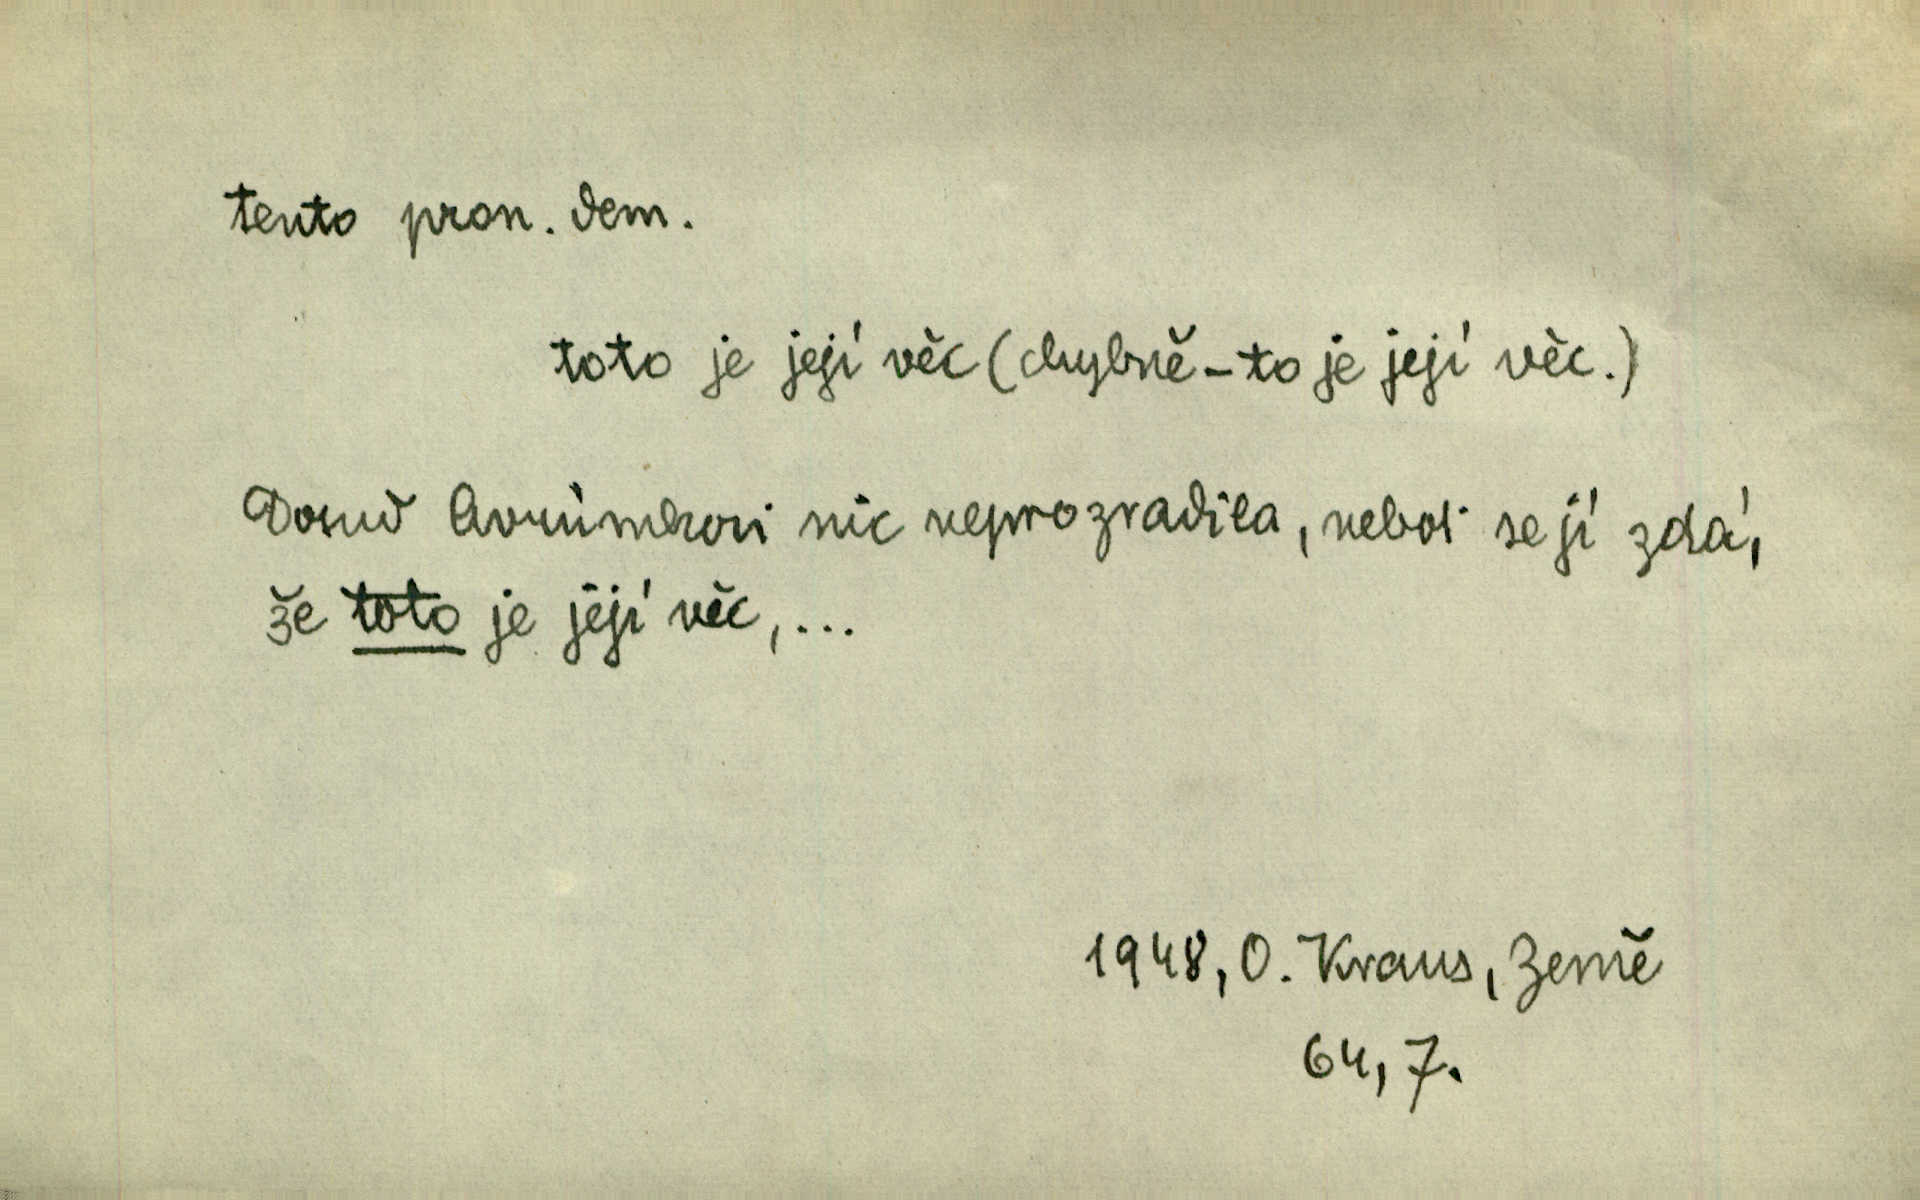 tento pron. dem.
toto je její věc (chybně – to je její věc.)
Dosud Avrumkovi nic neprozradila, neboť se jí zdá,
že toto je její věc, ...
1948, O. Kraus, Země
64, 7.